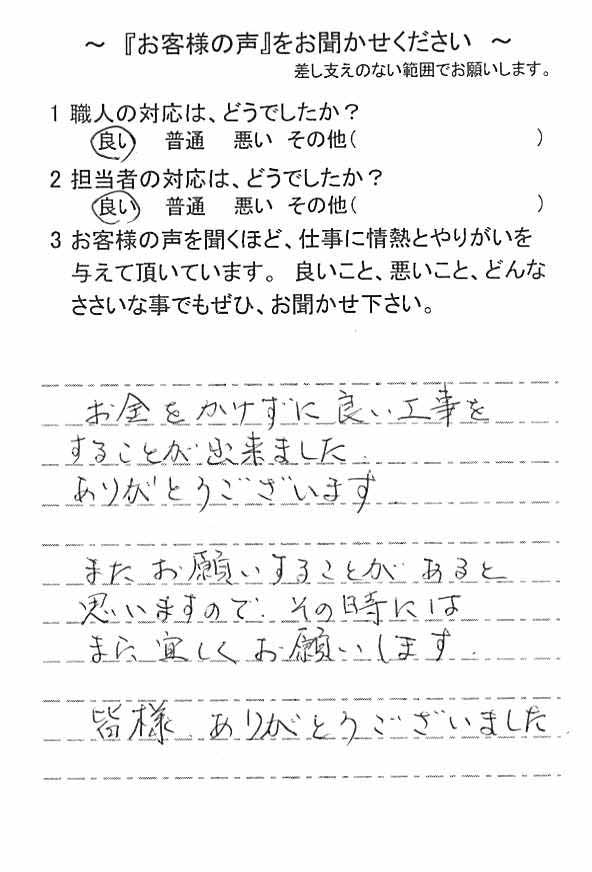 ～ 『お客様の声』をお聞かせください ～
差し支えのない範囲でお願いします。
1 職人の対応は、どうでしたか？
良い 普通 悪い その他( )
2 担当者の対応は、どうでしたか？
良い 普通 悪い その他( )
3 お客様の声を聞くほど、仕事に情熱とやりがいを
与えて頂いています。 良いこと、悪いこと、どんな
ささいな事でもぜひ、お聞かせ下さい。
お金をかけずに良い工事を
することが出来ました.
ありがとうございます.
またお願いすることがあると
思いますので、その時には
また宜しくお願いします.
皆様、ありがとうございました.